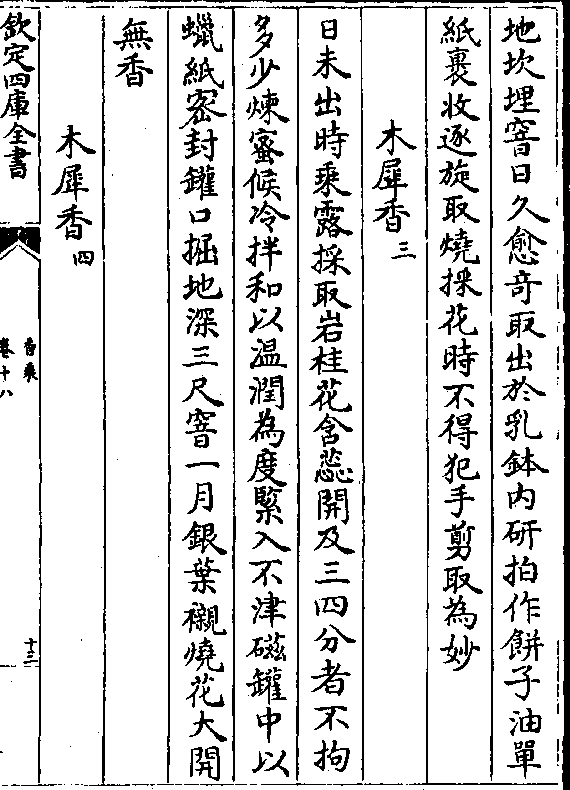 地坎埋窨日久愈竒取出於乳鉢内研拍作餅子油單
紙裹收逐旋取燒採花時不得犯手剪取為妙
木犀香三
日未出時乘露採取岩桂花含蕊開及三四分者不拘
多少煉蜜候冷拌和以温潤為度緊入不津磁罐中以
蠟紙密封罐口掘地深三尺窨一月銀葉襯燒花大開
無香
木犀香四
欽定四庫全書
香乘
卷十八
十三